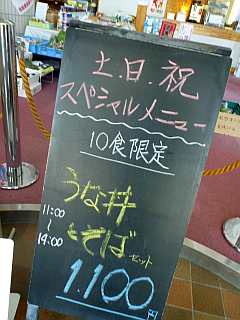 土.日.祝
スペシャルメニュー
10食限定
うな丼
11:00
～
14:00
そば
セット
1.100円